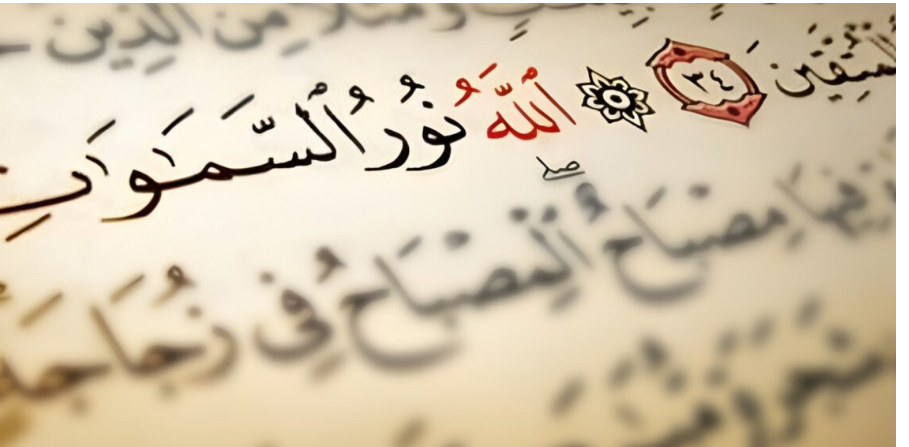 وَمَثَلًا مِنَ الَّذِينَ
لِلْمُتَّقِينَ ٣٤ اللَّهُ نُورُ السَّمٰوٰاتِ
صلى
فِيهَا مِصْبَاحٌ الْمِصْبَاحُ فِي زُجَاجَةٍ